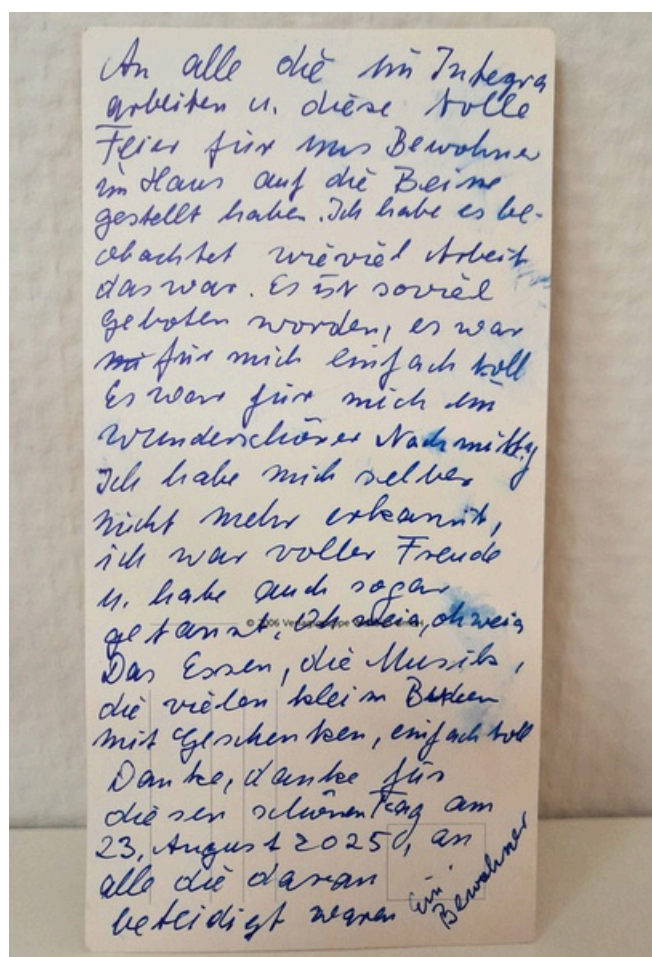 An alle die im Integra
arbeiten u. diese tolle
Feier für uns Bewohner
im Haus auf die Beine
gestellt haben. Ich habe es be-
obachtet wieviel Arbeit
das war. Es ist soviel
geboten worden, es war
für mich einfach toll
Es war für mich ein
wunderschöner Nachmittag
Ich habe mich selber
nicht mehr erkannt,
ich war voller Freude
u. habe auch sogar
getanzt, oh weia, oh weia
© 2006
Das Essen, die Musik,
die vielen klein Buden
mit Geschenken, einfach toll
Danke, danke für
diesen schönen Tag am
23. August 2025, an
alle die daran
beteidigt waren
ein Bewohner